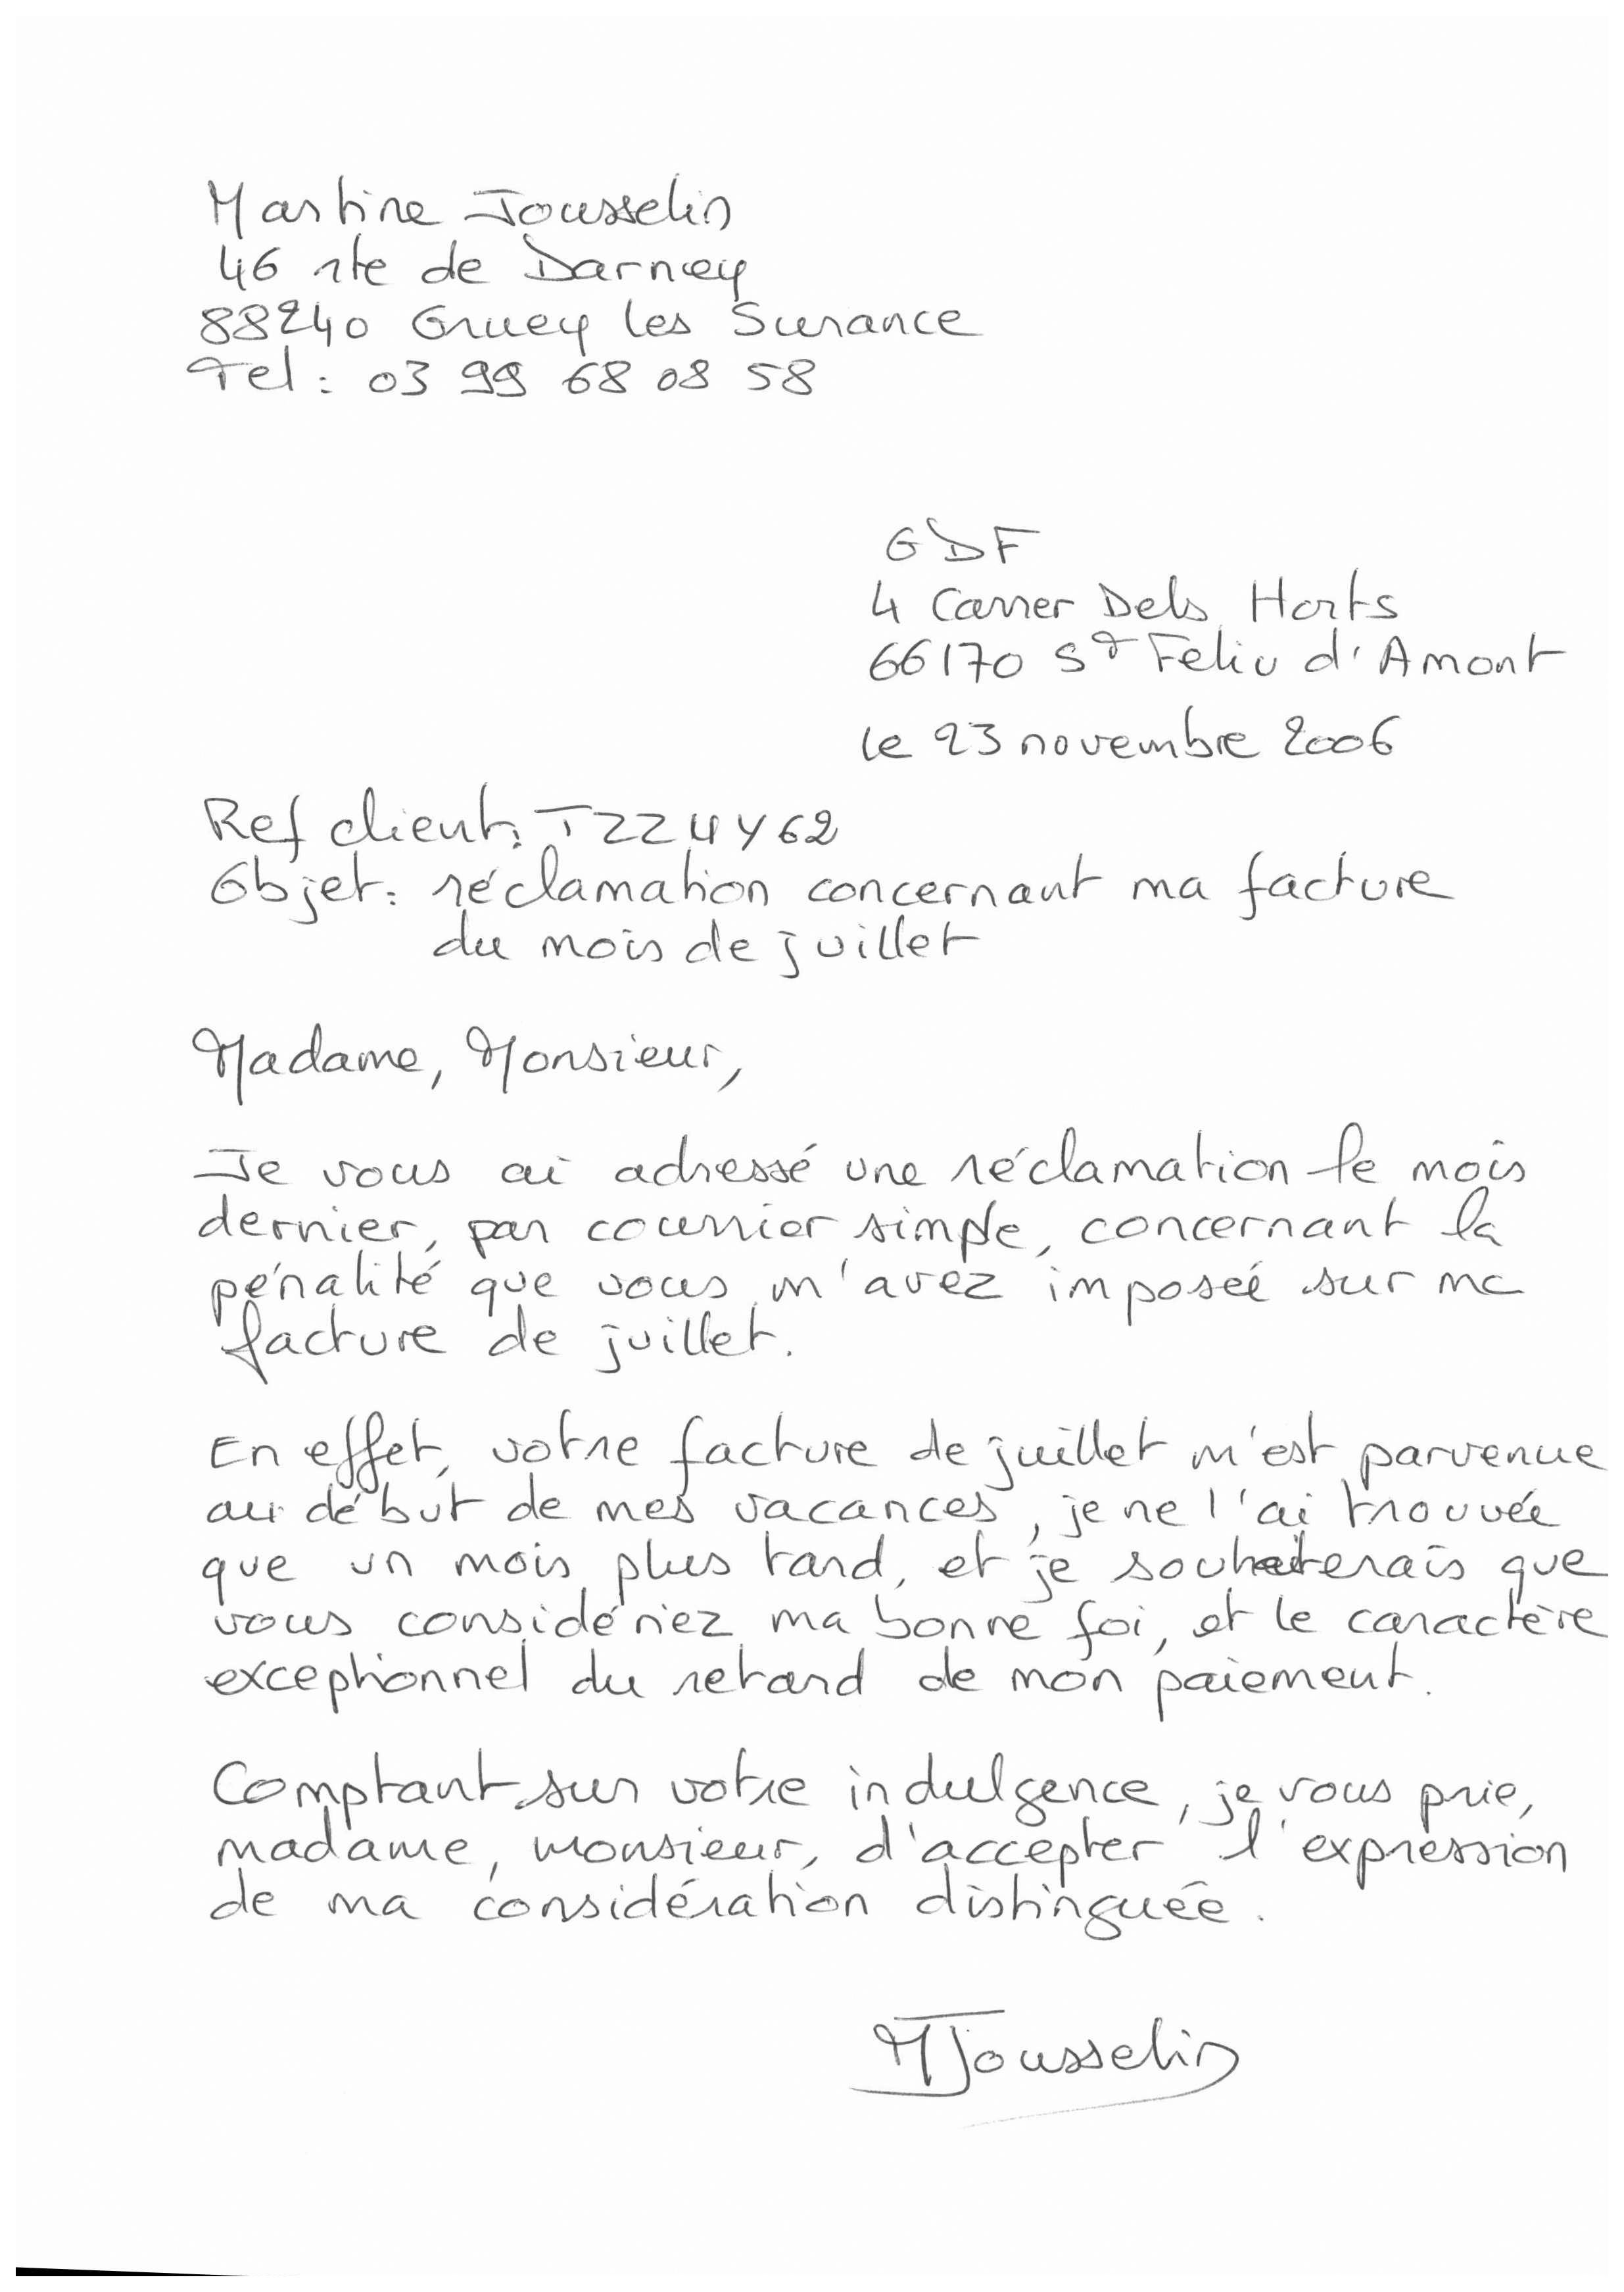 Martine Jousselin
46 rte de Darney
88240 Gruey les Surance
Tel : 03 99 68 08 58
GDF
4 Carrer Dels Horts
66170 St Feliu d'Amont
le 23 novembre 2006
Ref client : TZZ4Y62
Objet : réclamation concernant ma facture
du mois de juillet
Madame, Monsieur,
Je vous ai adressé une réclamation le mois
dernier, par courrier simple, concernant la
pénalité que vous m'avez imposée sur ma
facture de juillet.
En effet, votre facture de juillet m'est parvenue
au début de mes vacances, je ne l'ai trouvée
que un mois plus tard, et je souhaiterais que
vous considériez ma bonne foi, et le caractère
exceptionnel du retard de mon paiement.
Comptant sur votre indulgence, je vous prie,
madame, monsieur, d'accepter l'expression
de ma considération distinguée.
MJousselin